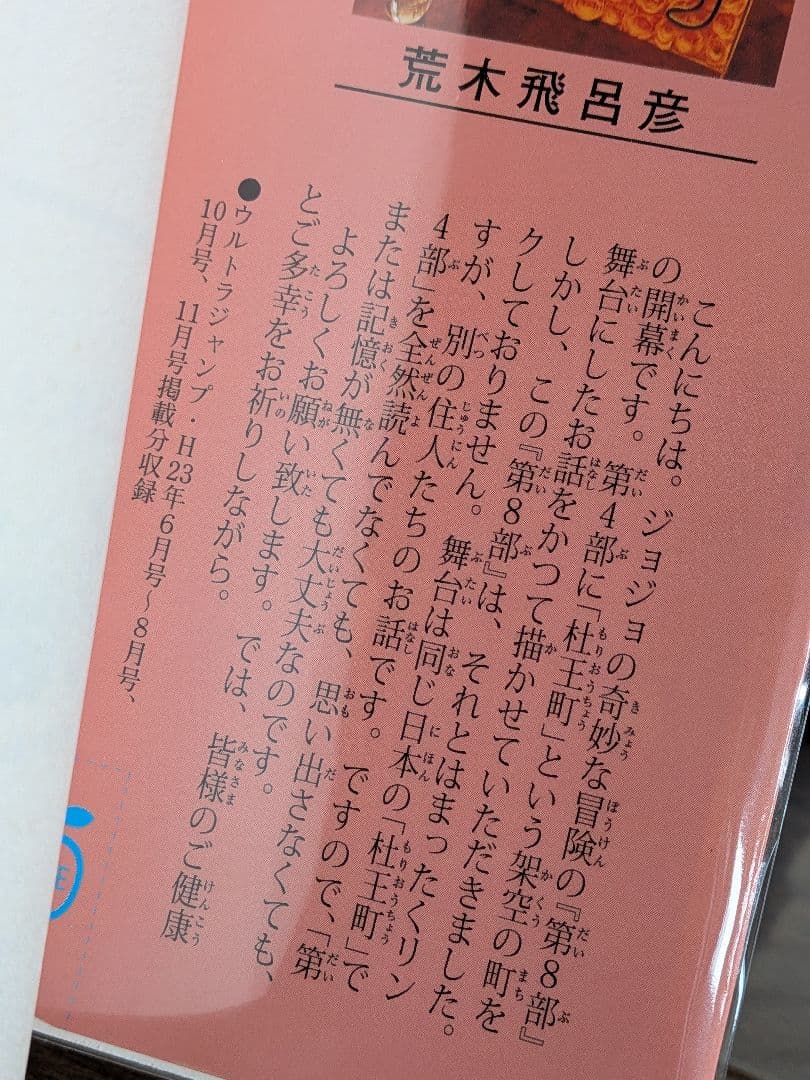 荒木飛呂彦
こんにちは。ジョジョの奇妙な冒険の『第8部』
の開幕です。第4部に「杜王町」という架空の町を
舞台にしたお話をかつて描かせていただきました。
しかし、この『第8部』は、それとはまったくリン
クしておりません。舞台は同じ日本の「杜王町」で
すが、別の住人たちのお話です。ですので、「第
4部」を全然読んでなくても、思い出さなくても、
または記憶が無くても大丈夫なのです。
よろしくお願い致します。では、皆様のご健康
とご多幸をお祈りしながら。
●ウルトラジャンプ・H23年6月号〜8月号、
10月号、11月号掲載分収録
E